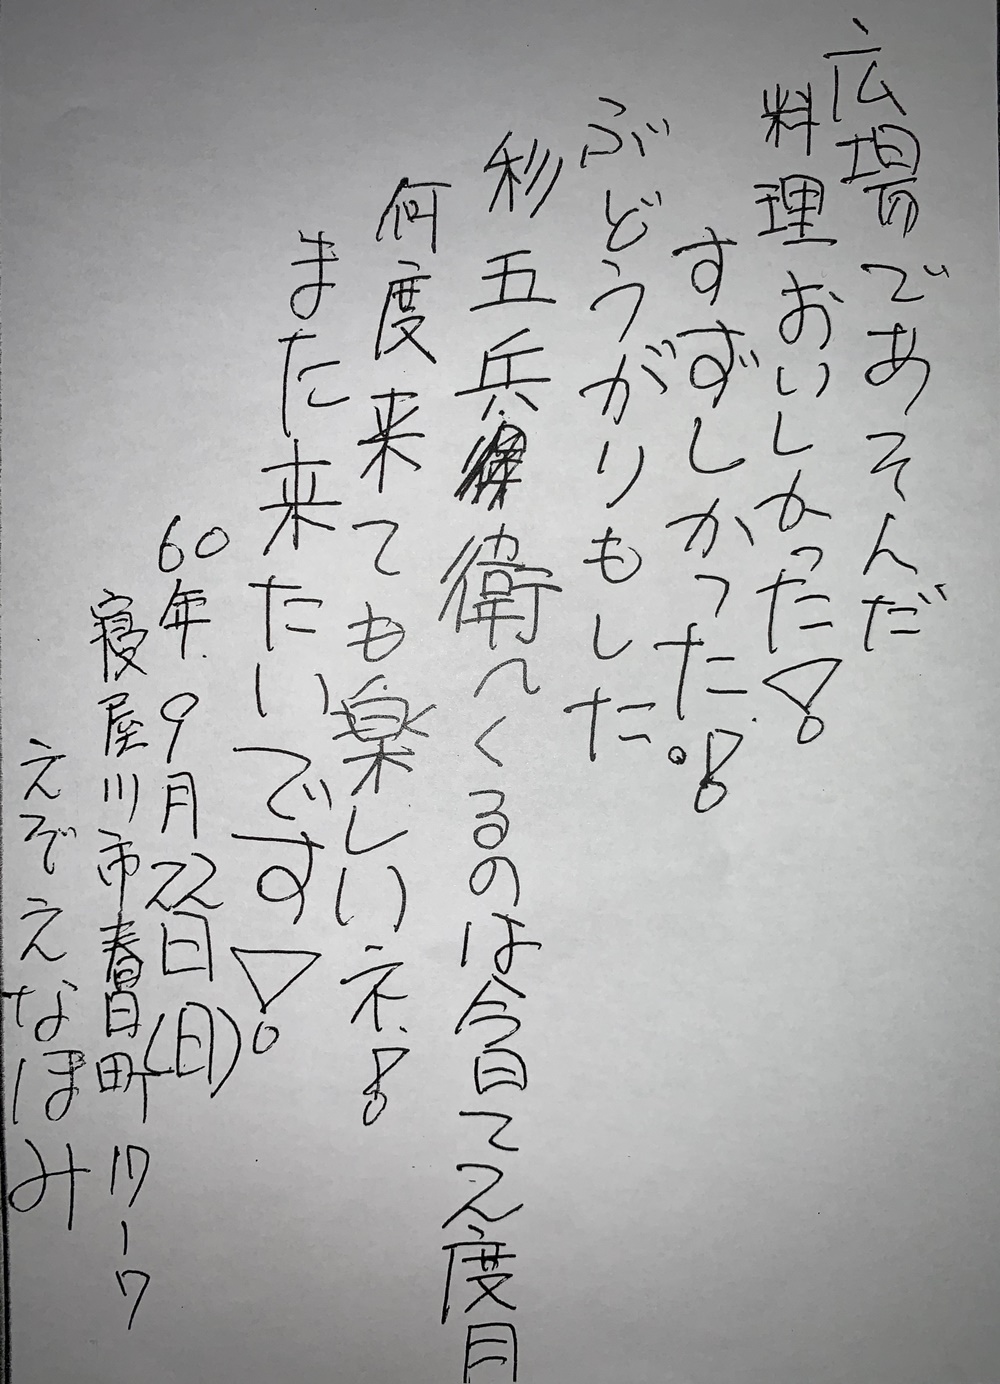 広場であそんだ
料理おいしかった!
すずしかった。!
ぶどうがりもした
杉五兵衛へくるのは今日て2度月
何度来ても楽しいネ!
また来たいです!
60年9月22日(日)
寝屋川市春日町17-7
えぞえなほみ